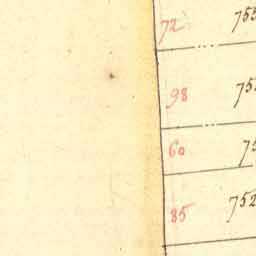 72 755
98 75
60 75
85 752